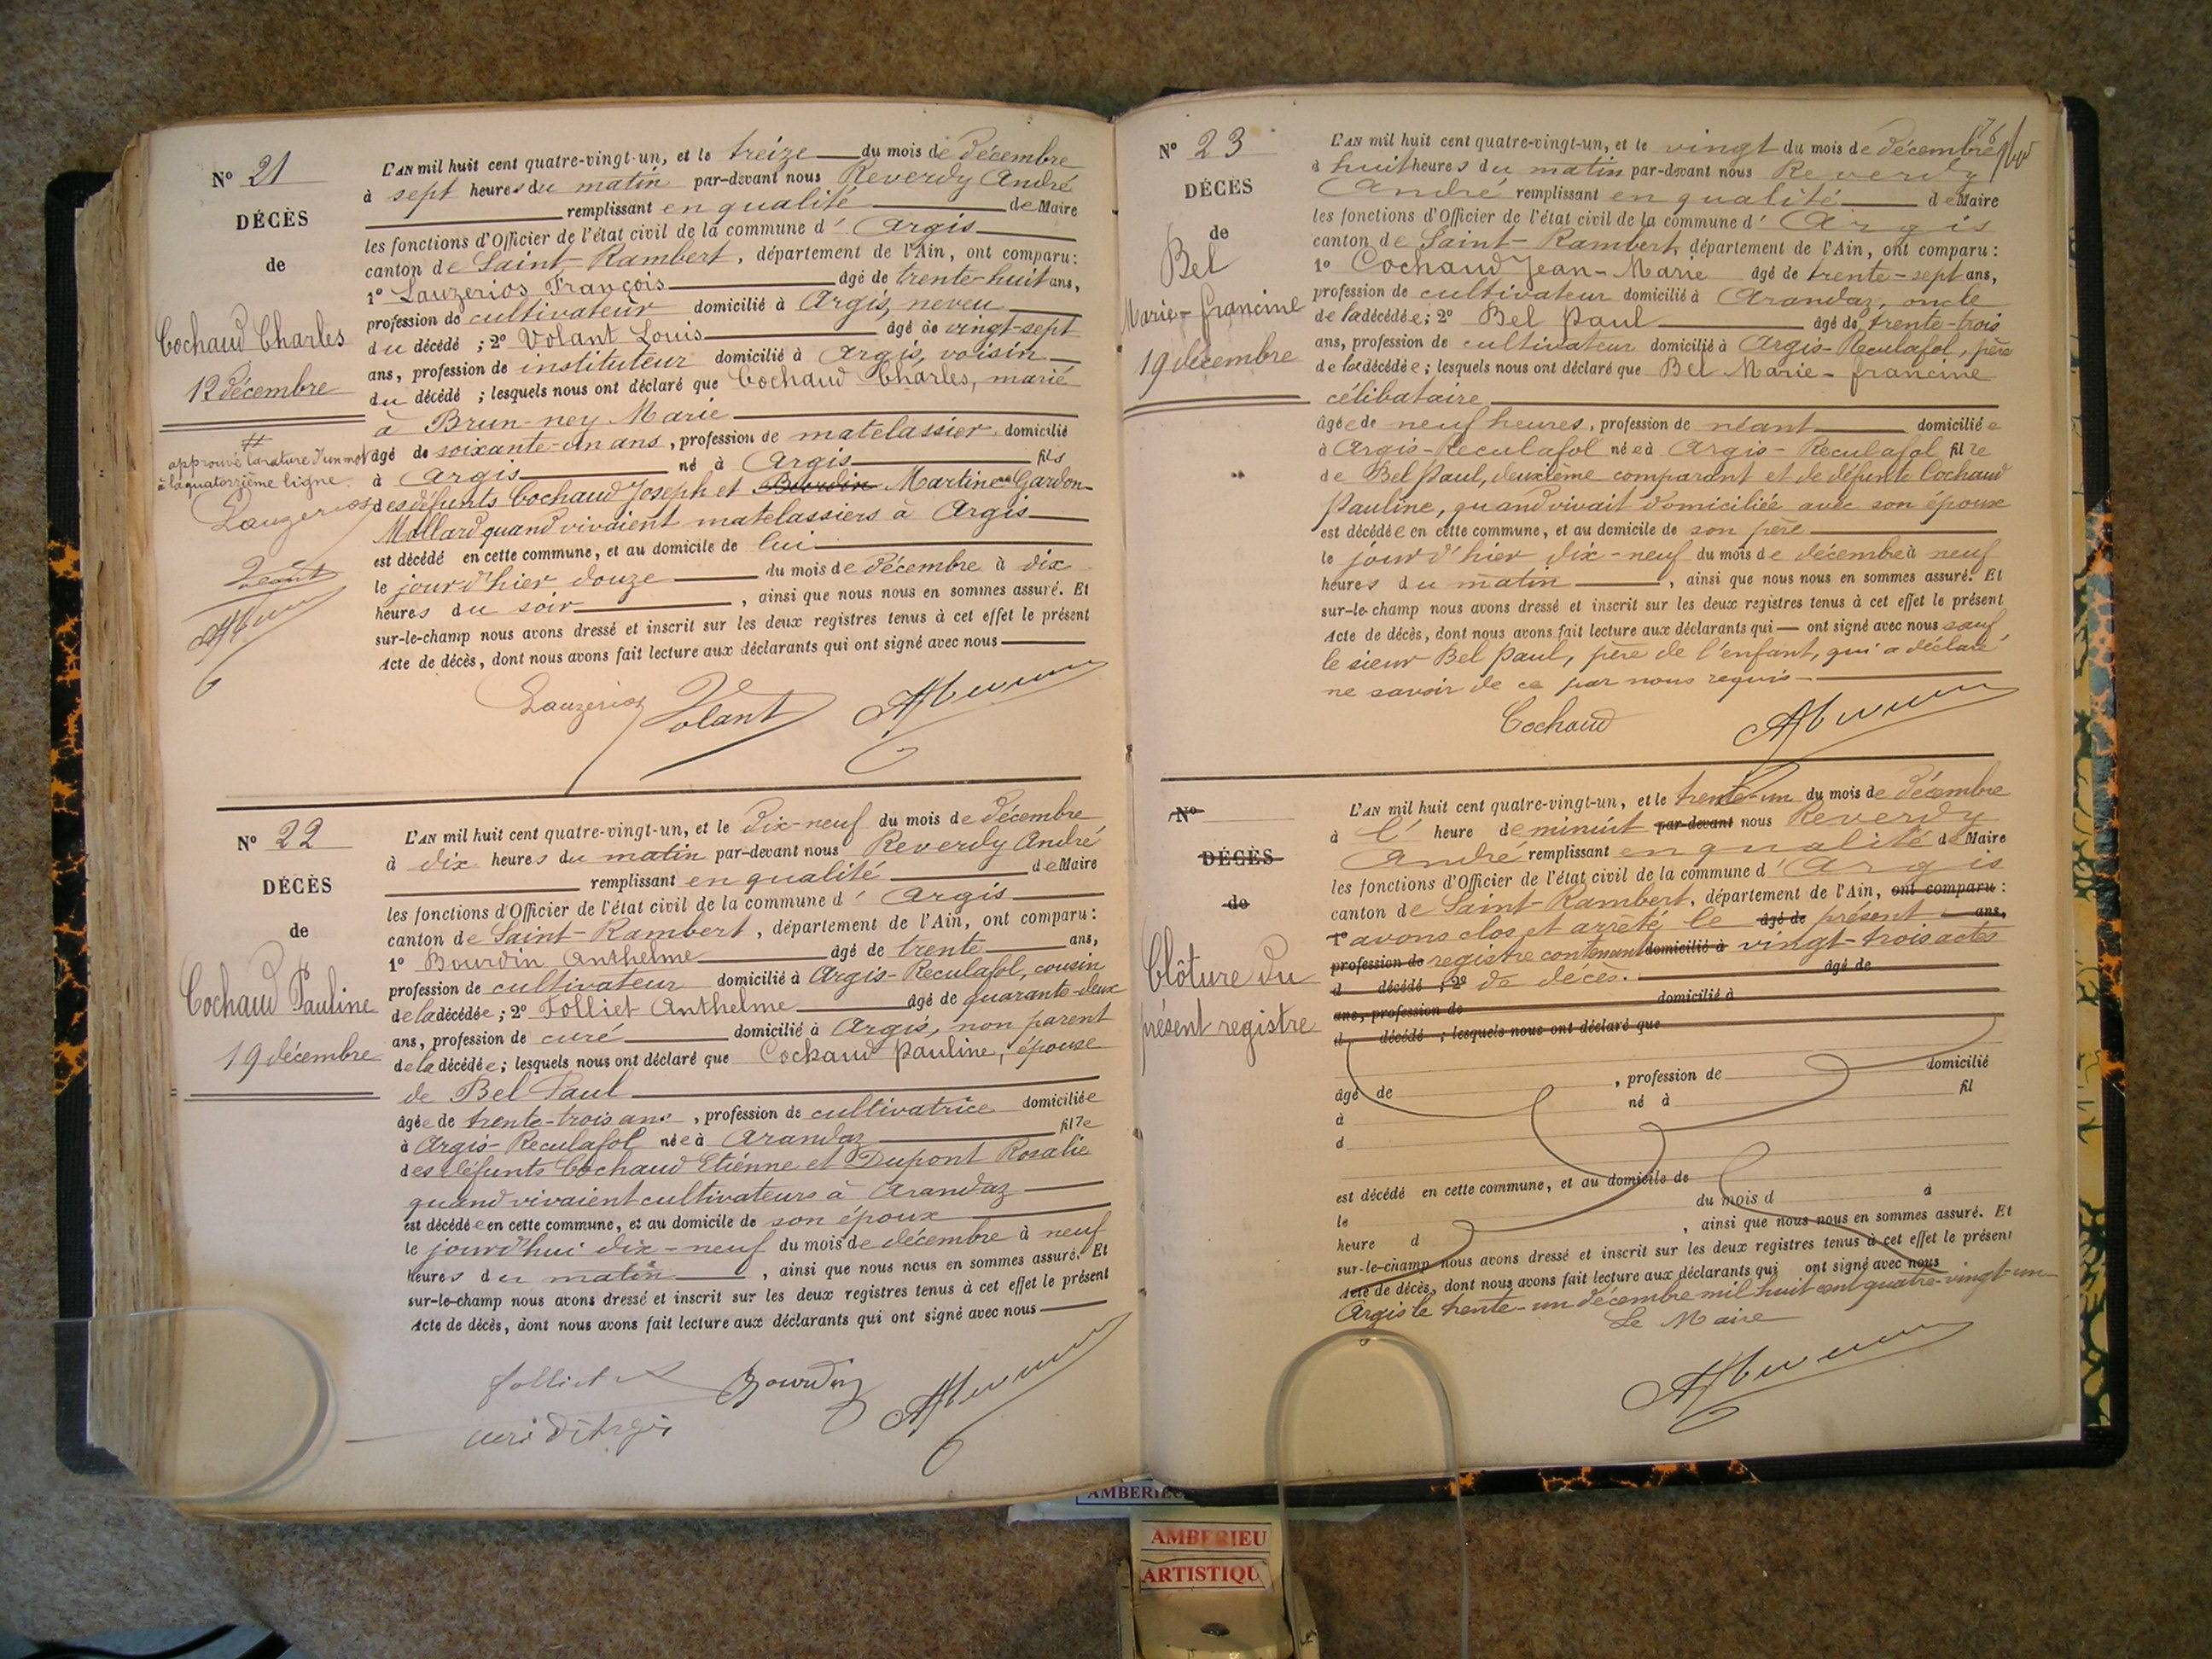 N° 21
DÉCÈS
de
Cochaud Charles
12 décembre
#
approuvé la rature d'un mot
à la quatorzième ligne.
Lauzerios
Volant
L'AN mil huit cent quatre-vingt-un, et le treize du mois de décembre
à sept heures du matin par-devant nous Reverdy André
remplissant en qualité de Maire
les fonctions d'Officier de l'état civil de la commune d' Argis
canton de Saint-Rambert, département de l'Ain, ont comparu:
1° Lauzerios François âgé de trente-huit ans,
profession de cultivateur domicilié à Argis, neveu
du décédé ; 2° Volant Louis âgé de vingt-sept
ans, profession de instituteur domicilié à Argis, voisin
du décédé ; lesquels nous ont déclaré que Cochaud Charles, marié
à Brun-ney Marie
âgé de soixante-un ans, profession de matelassier domicilié
à Argis né à Argis fils
des défunts Cochaud Joseph et Bourdin Martine Gardon-
Mollard quand vivaient matelassiers à Argis
est décédé en cette commune, et au domicile de lui
le jour d'hier douze du mois de décembre à dix
heures du soir, ainsi que nous nous en sommes assuré. Et
sur-le-champ nous avons dressé et inscrit sur les deux registres tenus à cet effet le présent
Acte de décès, dont nous avons fait lecture aux déclarants qui ont signé avec nous
Lauzerios Volant
N° 22
DÉCÈS
de
Cochaud Pauline
19 décembre
L'AN mil huit cent quatre-vingt-un, et le dix-neuf du mois de décembre
à dix heures du matin par-devant nous Reverdy André
remplissant en qualité de Maire
les fonctions d'Officier de l'état civil de la commune d' Argis
canton de Saint-Rambert, département de l'Ain, ont comparu:
1° Bourdin Anthelme âgé de trente ans,
profession de cultivateur domicilié à Argis-Reculafol, cousin
de la décédée ; 2° Folliet Anthelme âgé de quarante-deux
ans, profession de curé domicilié à Argis, non parent
de la décédée ; lesquels nous ont déclaré que Cochaud Pauline, épouse
de Bel Paul
âgée de trente-trois ans, profession de cultivatrice domiciliée
à Argis-Reculafol née à Arandaz fille
des défunts Cochaud Etiénne et Dupont Rosalie
quand vivaient cultivateurs à Arandaz
est décédée en cette commune, et au domicile de son époux
le jourd'hui dix-neuf du mois de décembre à neuf
heures du matin, ainsi que nous nous en sommes assuré. Et
sur-le-champ nous avons dressé et inscrit sur les deux registres tenus à cet effet le présent
Acte de décès, dont nous avons fait lecture aux déclarants qui ont signé avec nous
Folliet Bourdin
curé d'Argis
N° 23
DÉCÈS
de
Bel
Marie-francine
19 décembre
L'AN mil huit cent quatre-vingt-un, et le vingt du mois de décembre
à huit heures du matin par-devant nous Reverdy
André remplissant en qualité de Maire
les fonctions d'Officier de l'état civil de la commune d' Argis
canton de Saint-Rambert, département de l'Ain, ont comparu:
1° Cochaud Jean-Marie âgé de trente-sept ans,
profession de cultivateur domicilié à Arandaz, oncle
de la décédée ; 2° Bel Paul âgé de trente-trois
ans, profession de cultivateur domicilié à Argis-Reculafol, père
de la décédée ; lesquels nous ont déclaré que Bel Marie-francine
célibataire
âgée de neuf heures, profession de néant domiciliée
à Argis-Reculafol née à Argis-Reculafol fille
de Bel Paul, deuxième comparant et de défunte Cochaud
Pauline, quand vivait domiciliée avec son époux
est décédée en cette commune, et au domicile de son père
le jour d'hier dix-neuf du mois de décembre à neuf
heures du matin, ainsi que nous nous en sommes assuré. Et
sur-le-champ nous avons dressé et inscrit sur les deux registres tenus à cet effet le présent
Acte de décès, dont nous avons fait lecture aux déclarants qui ont signé avec nous sauf
le sieur Bel Paul, père de l'enfant, qui a déclaré
ne savoir de ce par nous requis
Cochaud
N°
DÉCÈS
de
Clôture du
présent registre
L'AN mil huit cent quatre-vingt-un, et le trente-un du mois de décembre
à l' heure de minuit par-devant nous Reverdy
André remplissant en qualité de Maire
les fonctions d'Officier de l'état civil de la commune d' Argis
canton de Saint-Rambert, département de l'Ain, ont comparu:
1° avons clos et arrêté le âgé de présent ans,
profession de registre contenant domicilié à vingt-trois actes
d décédé ; 2° de décès. âgé de
ans, profession de domicilié à
d décédé ; lesquels nous ont déclaré que
âgé de , profession de domicilié
à né à fil
d
est décédé en cette commune, et au domicile de
le du mois d à
heure d , ainsi que nous nous en sommes assuré. Et
sur-le-champ nous avons dressé et inscrit sur les deux registres tenus à cet effet le présent
Acte de décès, dont nous avons fait lecture aux déclarants qui ont signé avec nous
Argis le trente-un décembre mil huit cent quatre-vingt-un
Le Maire
AMBERIEU
AMBERIEU
ARTISTIQU